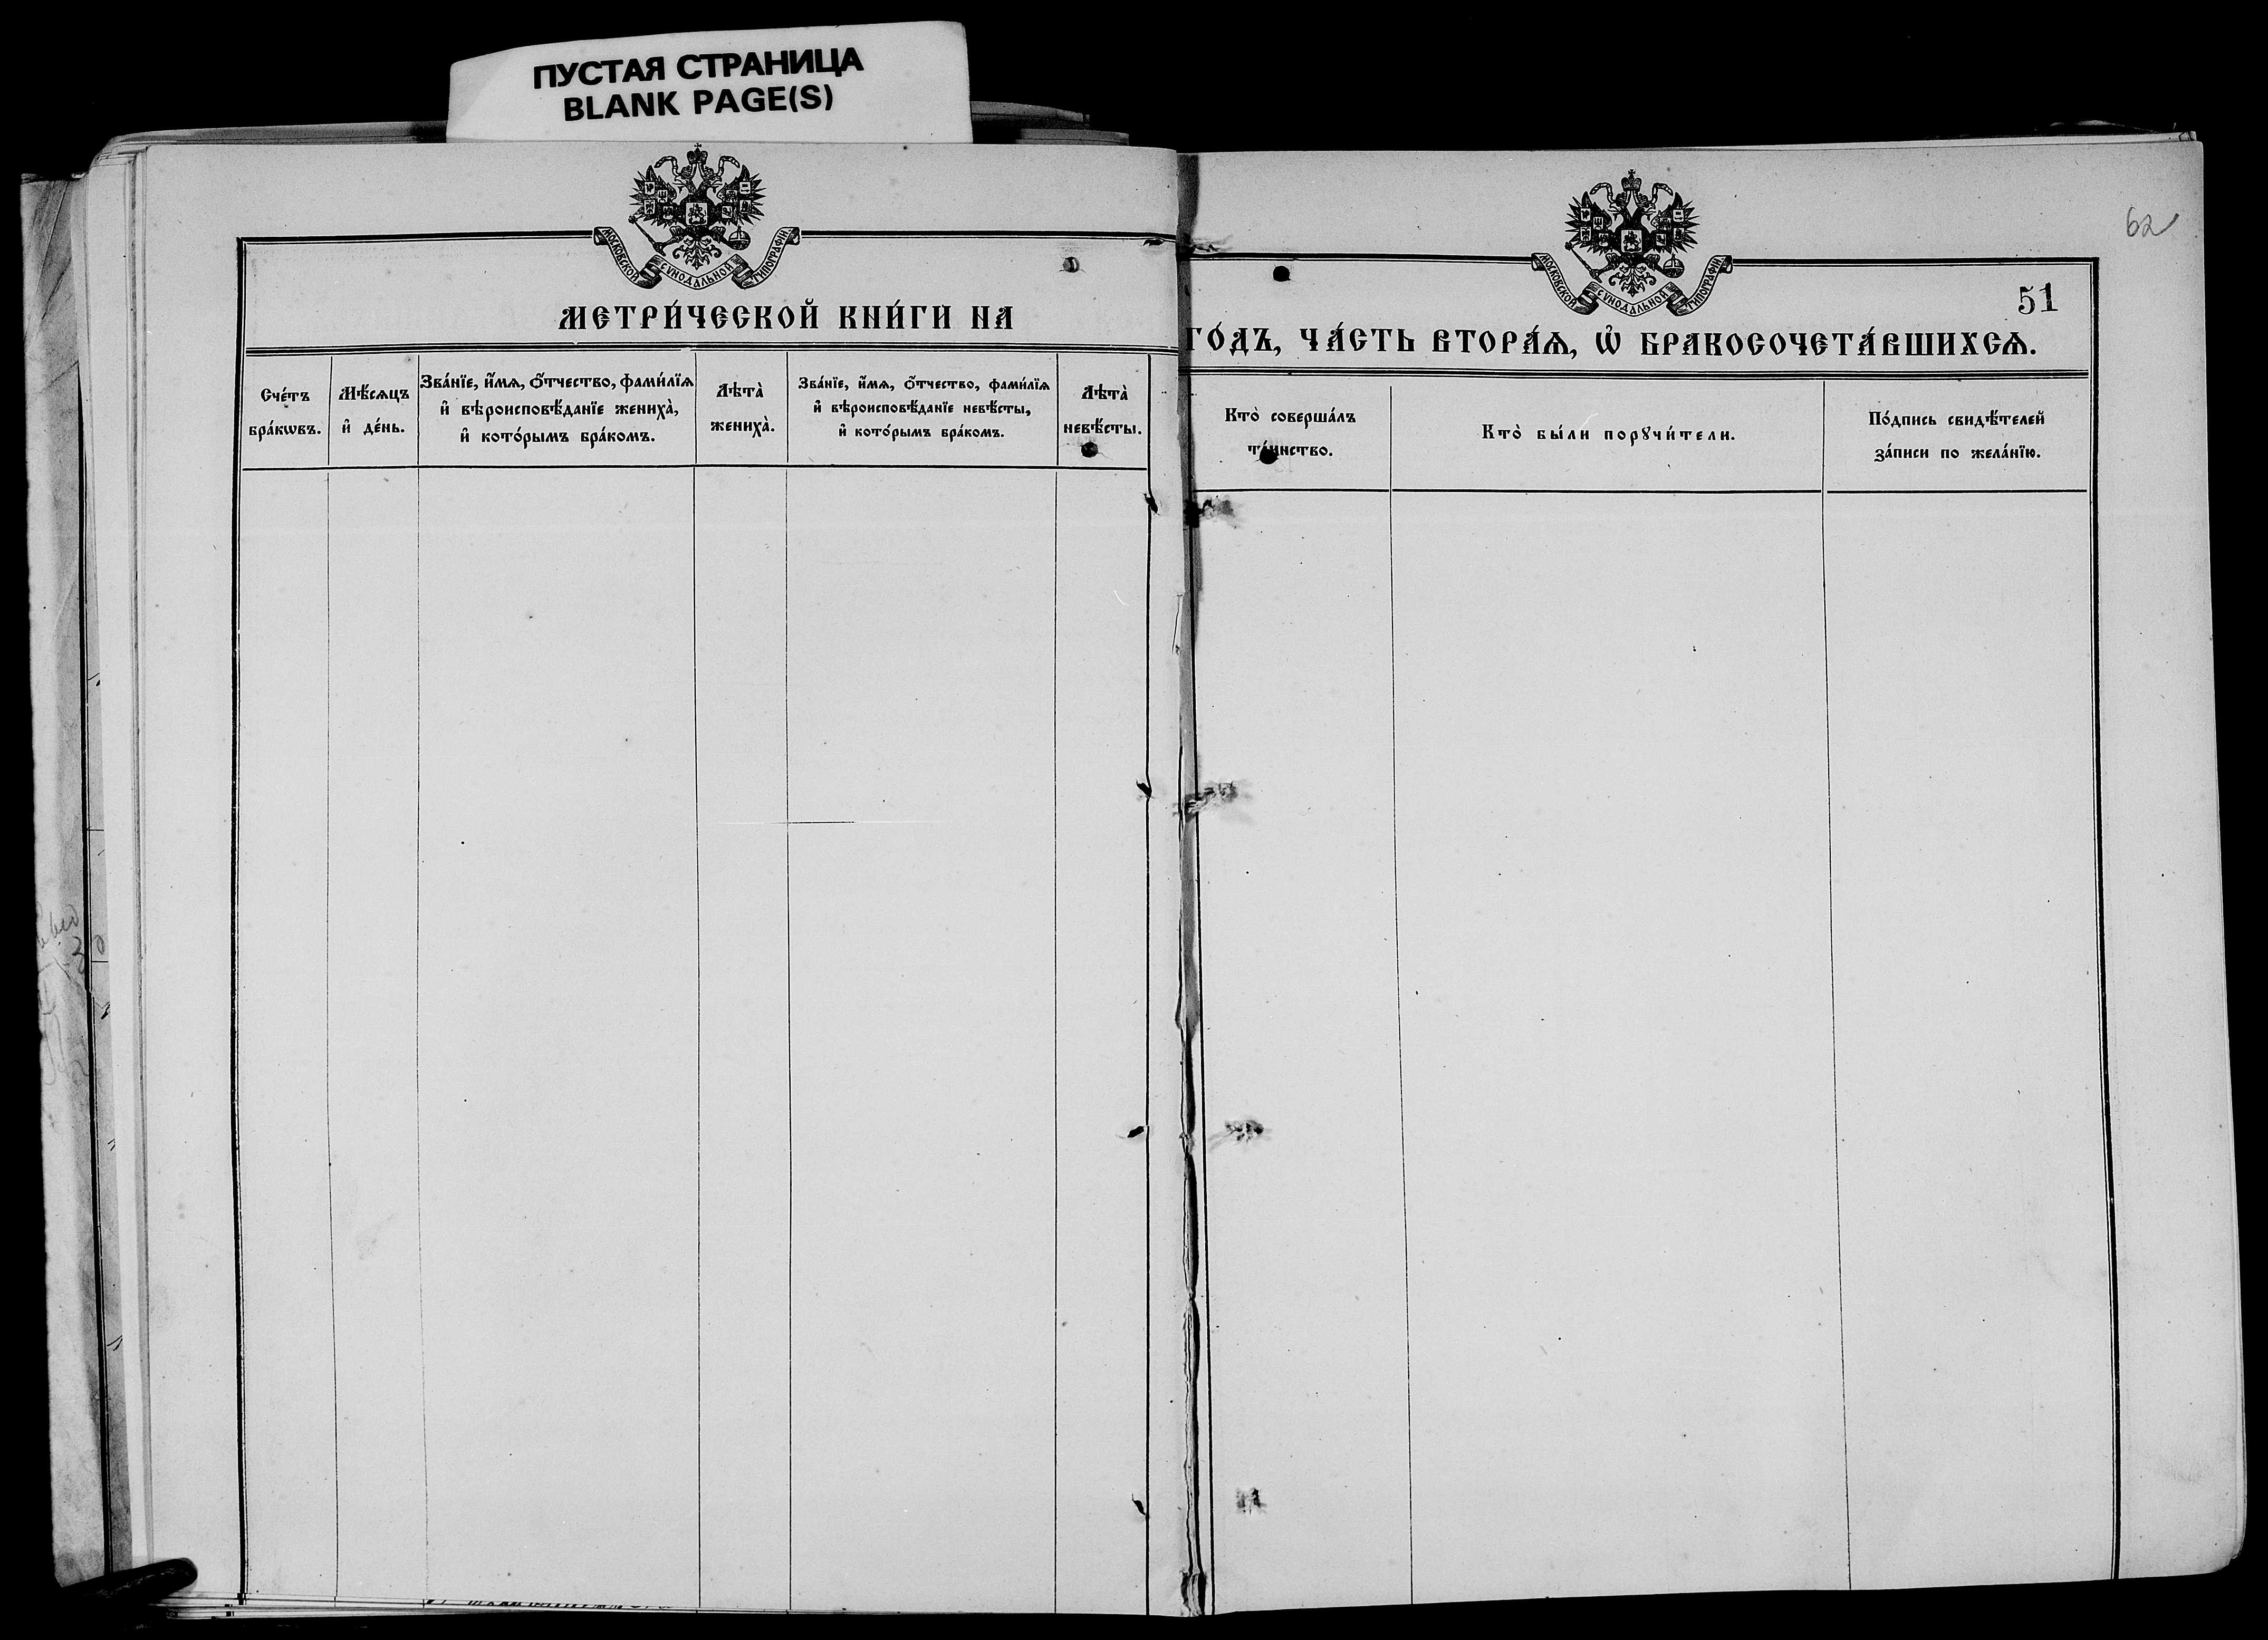 ПУСТАЯ СТРАНИЦА
BLANK PAGE(S)
МОСКОВСКОЙ СѴНОДАЛЬНОЙ ТИПОГРАФІИ
МЕТРИ́ЧЕСКОЙ КНИ́ГИ НА
Сче́тъ
бра́кѡвъ.
Мѣ́сѧцъ
и҆ де́нь.
Зва́нїе, и҆́мѧ, ѻ҆́тчество, фами́лїѧ
и҆ вѣроисповѣ́данїе жениха̀,
и҆ кото́рымъ бра́комъ.
Лѣта̀
жениха̀.
Зва́нїе, и҆́мѧ, ѻ҆́тчество, фами́лїѧ
и҆ вѣроисповѣ́данїе невѣ́сты,
и҆ кото́рымъ бра́комъ.
Лѣта̀
невѣ́сты.
62
МОСКОВСКОЙ СѴНОДАЛЬНОЙ ТИПОГРАФІИ
51
ГО́ДЪ, ЧА́СТЬ ВТОРА́Ѧ, Ѡ҆ БРАКОСОЧЕТА́ВШИХСѦ.
Кто̀ соверша́лъ
та́инство.
Кто̀ бы́ли порꙋчи́тели.
По́дпись свидѣ́телей
за́писи по жела́нїю.